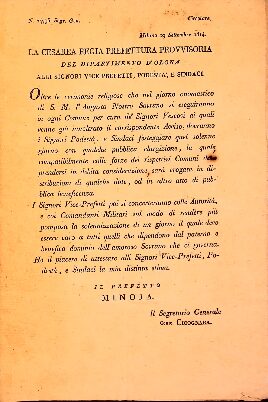 Circolare.
Milano 29 Settembre 1814.
LA CESAREA REGIA PREFETTURA PROVVISORIA
DEL DIPARTIMENTO D'OLONA
ALLI SIGNORI VICE-PREFETTI, PODESTÀ, E SINDACI
Oltre le ceremonie religiose che nel giorno onomastico
di S. M. l'Augusto Nostro Sovrano si eseguiranno
in ogni Comune per cura dei Signori Vescovi ai quali
venne già inoltrato il corrispondente Avviso, dovranno
i Signori Podestà, e Sindaci festeggiare quel solenne
giorno con qualche pubblica elargizione, la quale
compatibilmente colle forze dei rispettivi Comuni da
prendersi in debita considerazione, sarà erogata in di-
stribuzioni di qualche dote, od in altro atto di pub-
blica beneficenza.
I Signori Vice-Prefetti poi si concerteranno colle Autorità,
e coi Comandanti Militari sul modo di rendere più
pomposa la solennizzazione di un giorno il quale deve
essere caro a tutti quelli che dipendono dal paterno e
benefico dominio dell'amoroso Sovrano che ci governa.
Ho il piacere di attestare alli Signori Vice-Prefetti, Po-
destà, e Sindaci la mia distinta stima.
IL PREFETTO
MINOJA.
Il Segretario Generale
CICOGNARA.